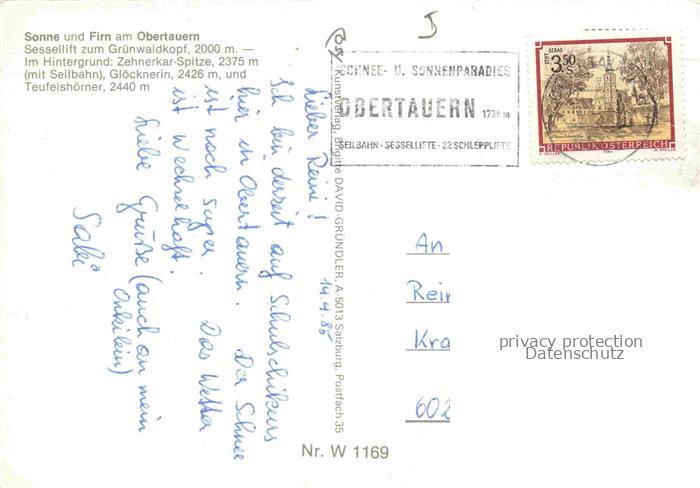 Sonne und Firn am Obertauern
Sessellift zum Grünwaldkopf, 2000 m. —
Im Hintergrund: Zehnerkar-Spitze, 2375 m
(mit Seilbahn), Glöcknerin, 2426 m, und
Teufelshörner, 2440 m
SCHNEE- U. SONNENPARADIES
OBERTAUERN 1738 m
SEILBAHN - SESSELLIFTE - 22 SCHLEPPLIFTE
GERAS
3.50
S
REPUBLIK ÖSTERREICH
14.4.85
Lieber Reini!
Ich bin derzeit auf Schulschikurs
hier in Obertauern. Der Schnee
ist noch super. Das Wetter
ist wechselhaft.
Liebe Grüße (auch an mein
Onkilein)
Sabi
Kunstverlag, Brigitte DAVID GRÜNDLER, A-5013 Salzburg, Postfach 35
An
Rein
Kra
602
privacy protection
Datenschutz
Nr. W 1169